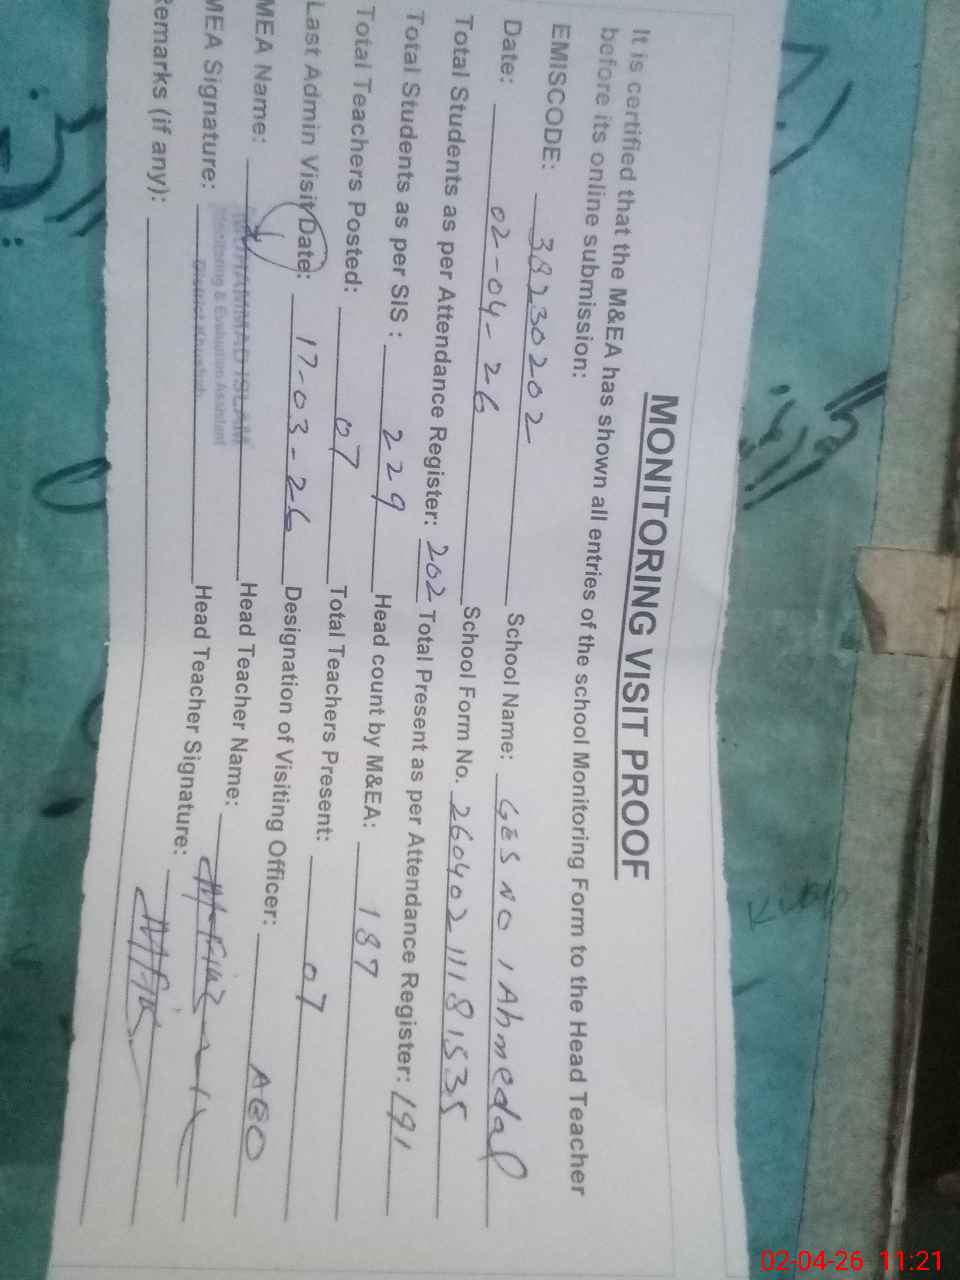 MONITORING VISIT PROOF
It is certified that the M&EA has shown all entries of the school Monitoring Form to the Head Teacher
before its online submission:
EMISCODE: 38230202 School Name: GES NO 1 Ahmedal
Date: 02-04-26 School Form No. 26040211181535
Total Students as per Attendance Register: 202 Total Present as per Attendance Register: 191
Total Students as per SIS : 229 Head count by M&EA: 187
Total Teachers Posted: 07 Total Teachers Present: 07
Last Admin Visit Date: 17-03-26 Designation of Visiting Officer: AEO
MEA Name: MUHAMMAD ISLAM Head Teacher Name:
Monitoring & Evaluation Assistant
MEA Signature: District Khushab Head Teacher Signature:
Remarks (if any):
02-04-26 11:21